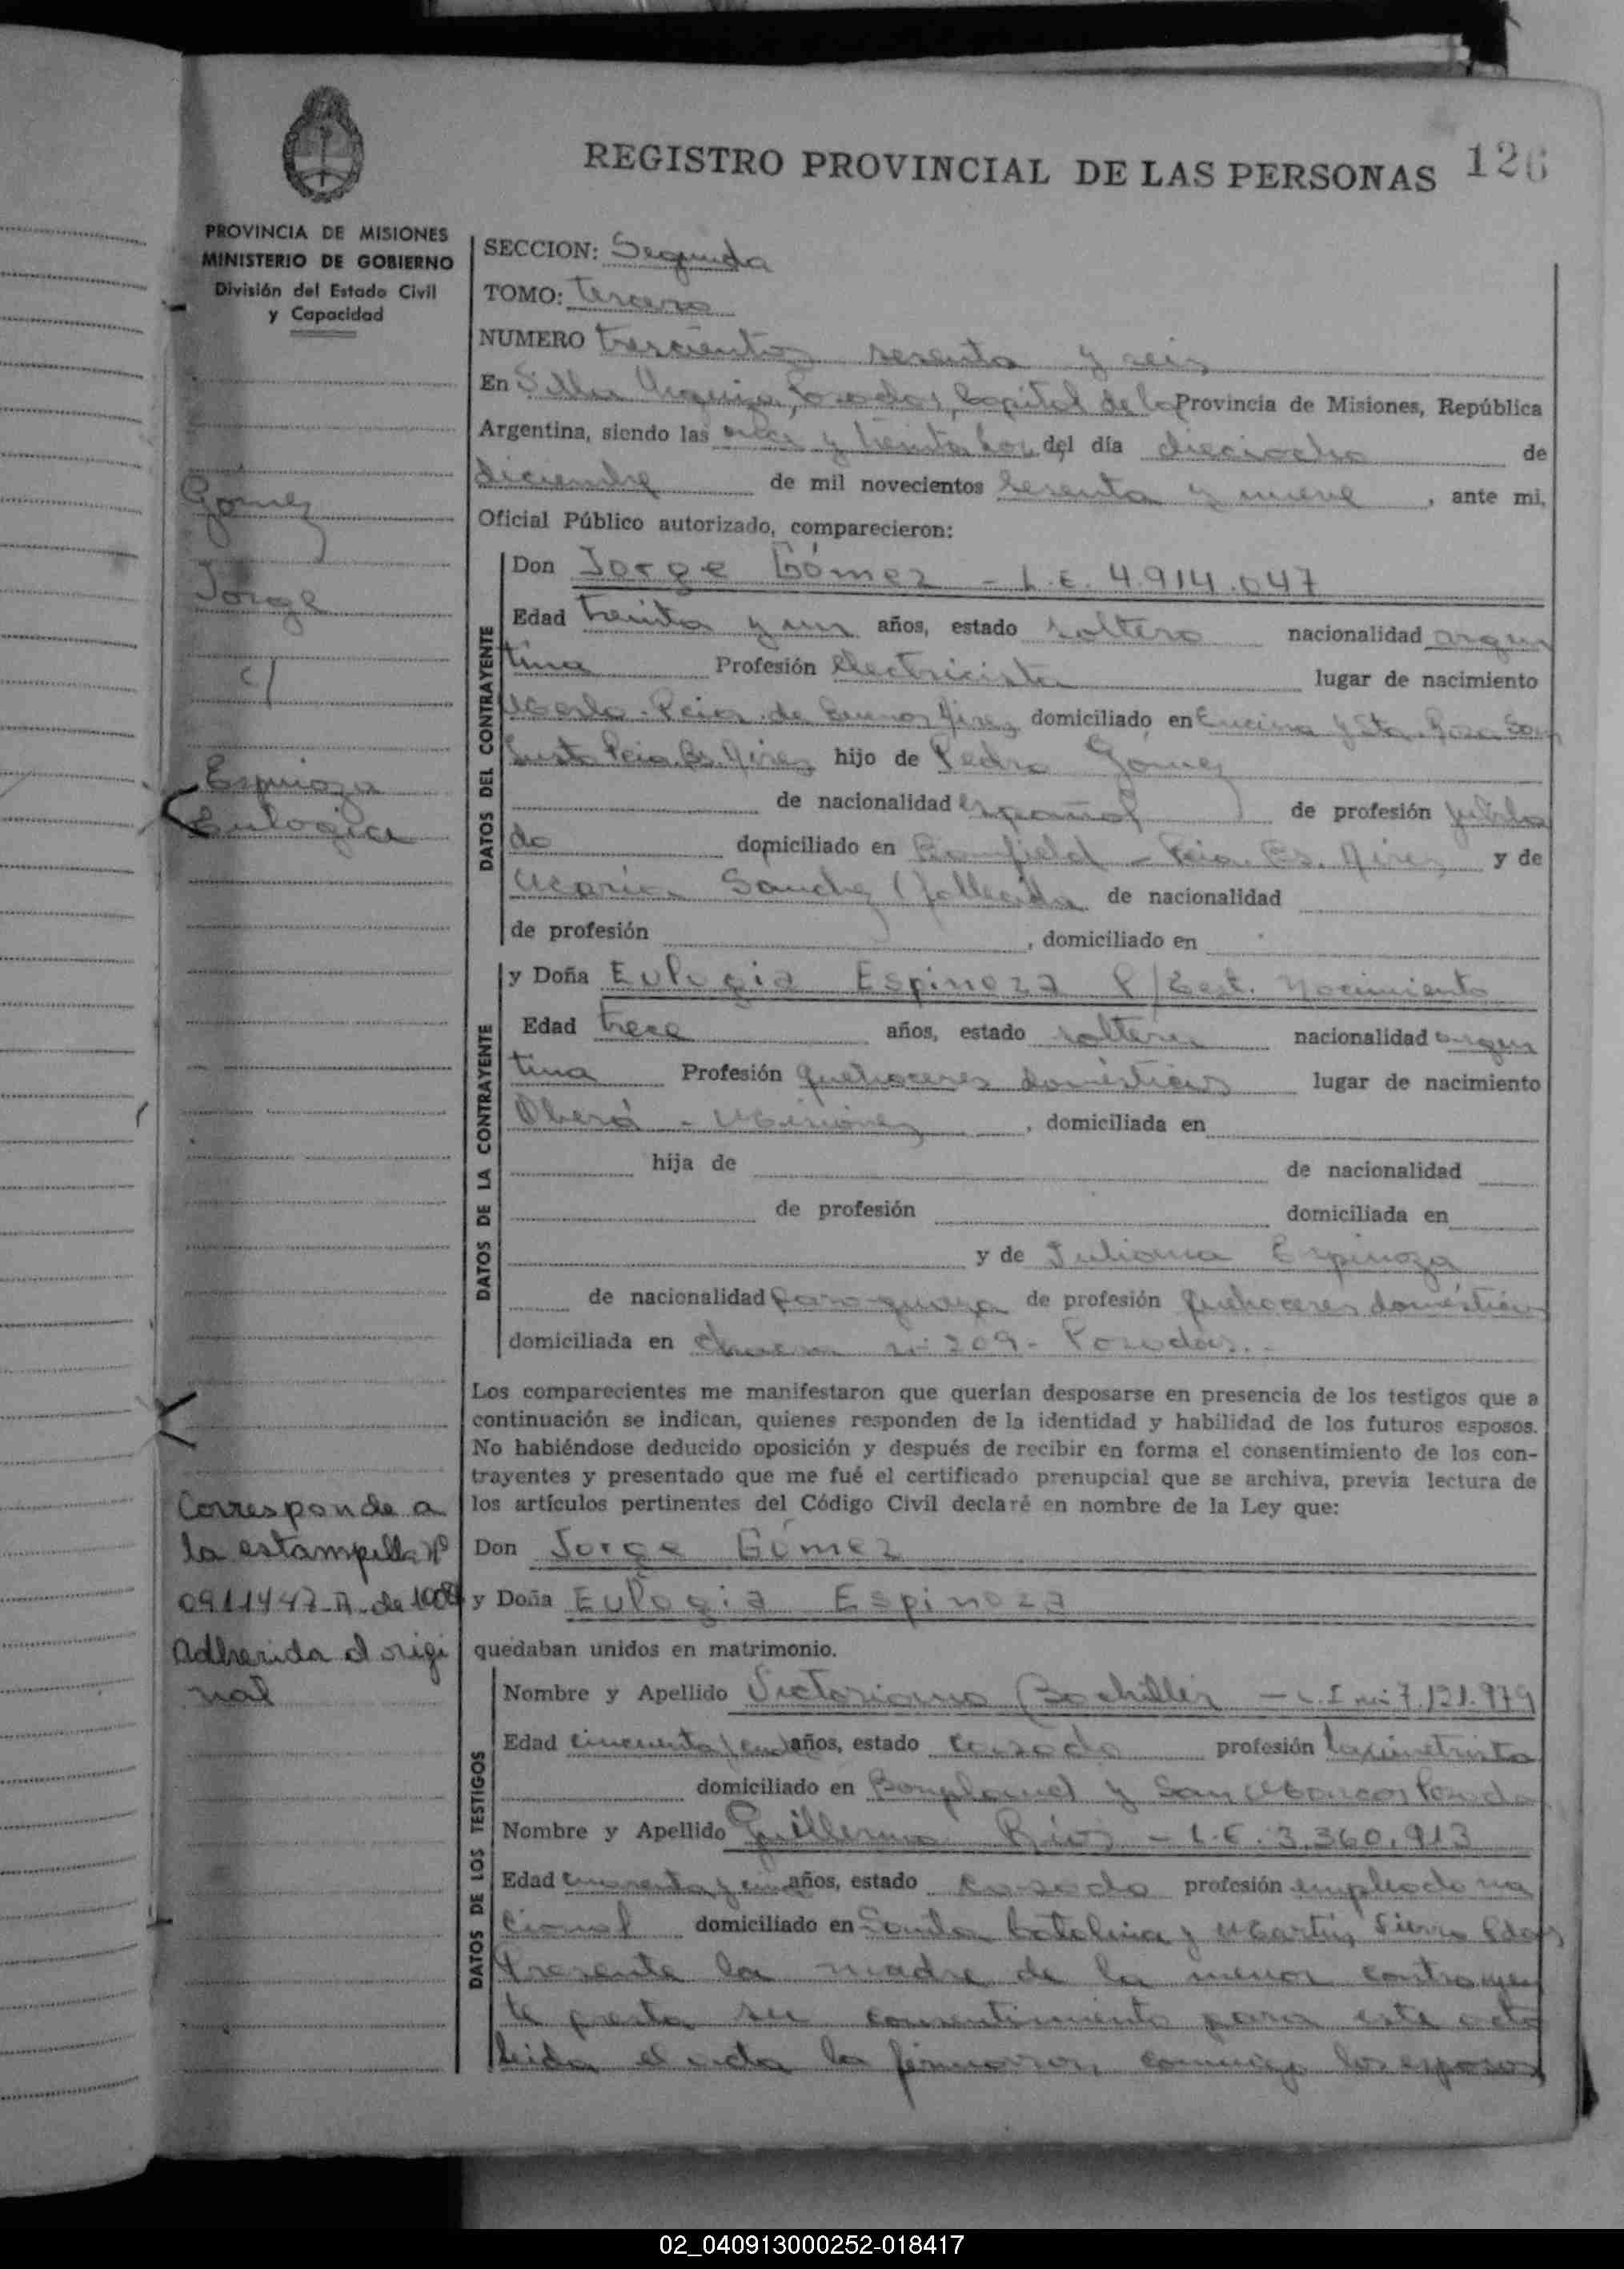 REGISTRO PROVINCIAL DE LAS PERSONAS 126
PROVINCIA DE MISIONES
MINISTERIO DE GOBIERNO
División del Estado Civil
y Capacidad
Gomez
Jorge
c/
Espinoza
Eulogia
Corresponde a
la estampilla Nº
0911447-A-de 100$
Adherida al origi
nal
SECCION: Segunda
TOMO: tercero
NUMERO trescientos sesenta y seis
En Villa Urquiza, Posadas, Capital de la Provincia de Misiones, República
Argentina, siendo las once y treinta hor del día dieciocho de
diciembre de mil novecientos sesenta y nueve, ante mi,
Oficial Público autorizado, comparecieron:
DATOS DEL CONTRAYENTE
Don Jorge Gómez - L.E. 4.914.047
Edad treinta y un años, estado soltero nacionalidad argen
tina Profesión electricista lugar de nacimiento
Merlo - Pcia. de Buenos Aires domiciliado en Encina y Sta. Rosa San
Justo Pcia. Bs. Aires hijo de Pedro Gómez
de nacionalidad español de profesión jubila
do domiciliado en Banfield - Pcia. Bs. Aires y de
María Sanchez (fallecida) de nacionalidad
de profesión , domiciliado en
DATOS DE LA CONTRAYENTE
y Doña Eulogia Espinoza P/Cert. Nacimiento
Edad trece años, estado soltera nacionalidad argen
tina Profesión quehaceres domésticos lugar de nacimiento
Oberá - Misiones , domiciliada en
hija de de nacionalidad
de profesión domiciliada en
y de Juliana Espinoza
de nacionalidad paraguaya de profesión quehaceres domésticos
domiciliada en nº 209 - Posadas.-
Los comparecientes me manifestaron que querían desposarse en presencia de los testigos que a
continuación se indican, quienes responden de la identidad y habilidad de los futuros esposos.
No habiéndose deducido oposición y después de recibir en forma el consentimiento de los con-
trayentes y presentado que me fué el certificado prenupcial que se archiva, previa lectura de
los artículos pertinentes del Código Civil declaré en nombre de la Ley que:
Don Jorge Gómez
y Doña Eulogia Espinoza
quedaban unidos en matrimonio.
DATOS DE LOS TESTIGOS
Nombre y Apellido Victoriano Bachiller - L.E. nº 7.121.979
Edad cincuenta años, estado casado profesión taximetrista
domiciliado en Bonpland y San Marcos Posadas
Nombre y Apellido Guillermo Ríos - L.E. 3.360.913
Edad y años, estado casado profesión empleado na
cional domiciliado en Santa Catalina y Martín Fierro Pdas
Presente la madre de la menor contrayen
te presta su consentimiento para este acto
leida el acta la firmaron, conmigo los esposos
02_040913000252-018417